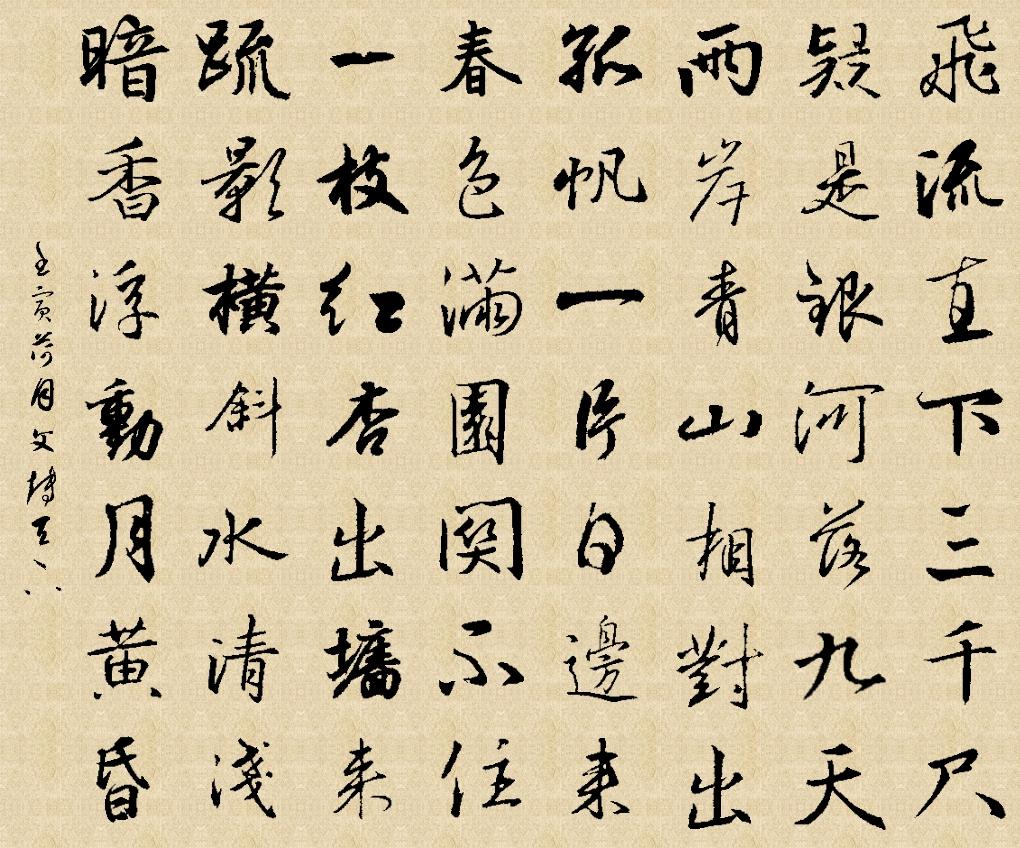 飛流直下三千尺
疑是銀河落九天
兩岸青山相對出
孤帆一片日邊来
春色滿園關不住
一枝紅杏出墻来
疏影橫斜水清淺
暗香浮動月黄昏
壬寅荷月文博